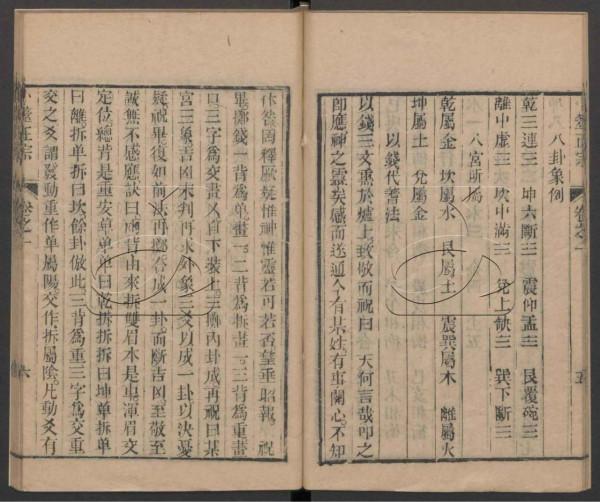 卜筮正宗 卷之一 五
八卦象例
乾三連☰ 坤六斷☷ 震仰盂☳ 艮覆碗☶
離中虛☲ 坎中滿☵ 兌上缺☱ 巽下斷☴
八宮所屬
乾屬金 坎屬水 艮屬土 震巽屬木 離屬火
坤屬土 兌屬金
以錢代蓍法
以錢三文熏於爐上致敬而祝曰 天何言哉叩之
即應神之靈矣感而遂通今有某姓有事關心不知
休咎罔釋厥疑惟神惟靈若可若否望垂昭報 祝
畢擲錢一背爲單畫一二背爲拆畫--三背爲重畫
口三字爲交畫乂自下裝上三擲內卦成再祝曰某
宮三象吉凶未判再求外象三爻以成一卦以決憂
疑祝畢復如前法再擲合成一卦而斷吉凶至敬至
誠無不感應訣曰兩背由來拆雙眉本是單渾眉交
定位總背是重安單單單曰乾拆拆拆曰坤單拆單
曰離拆單拆曰坎餘卦倣此三背爲重三字爲交重
交之爻謂發動重作單屬陽交作拆屬陰凡動爻有
卜筮正宗 卷之一 六